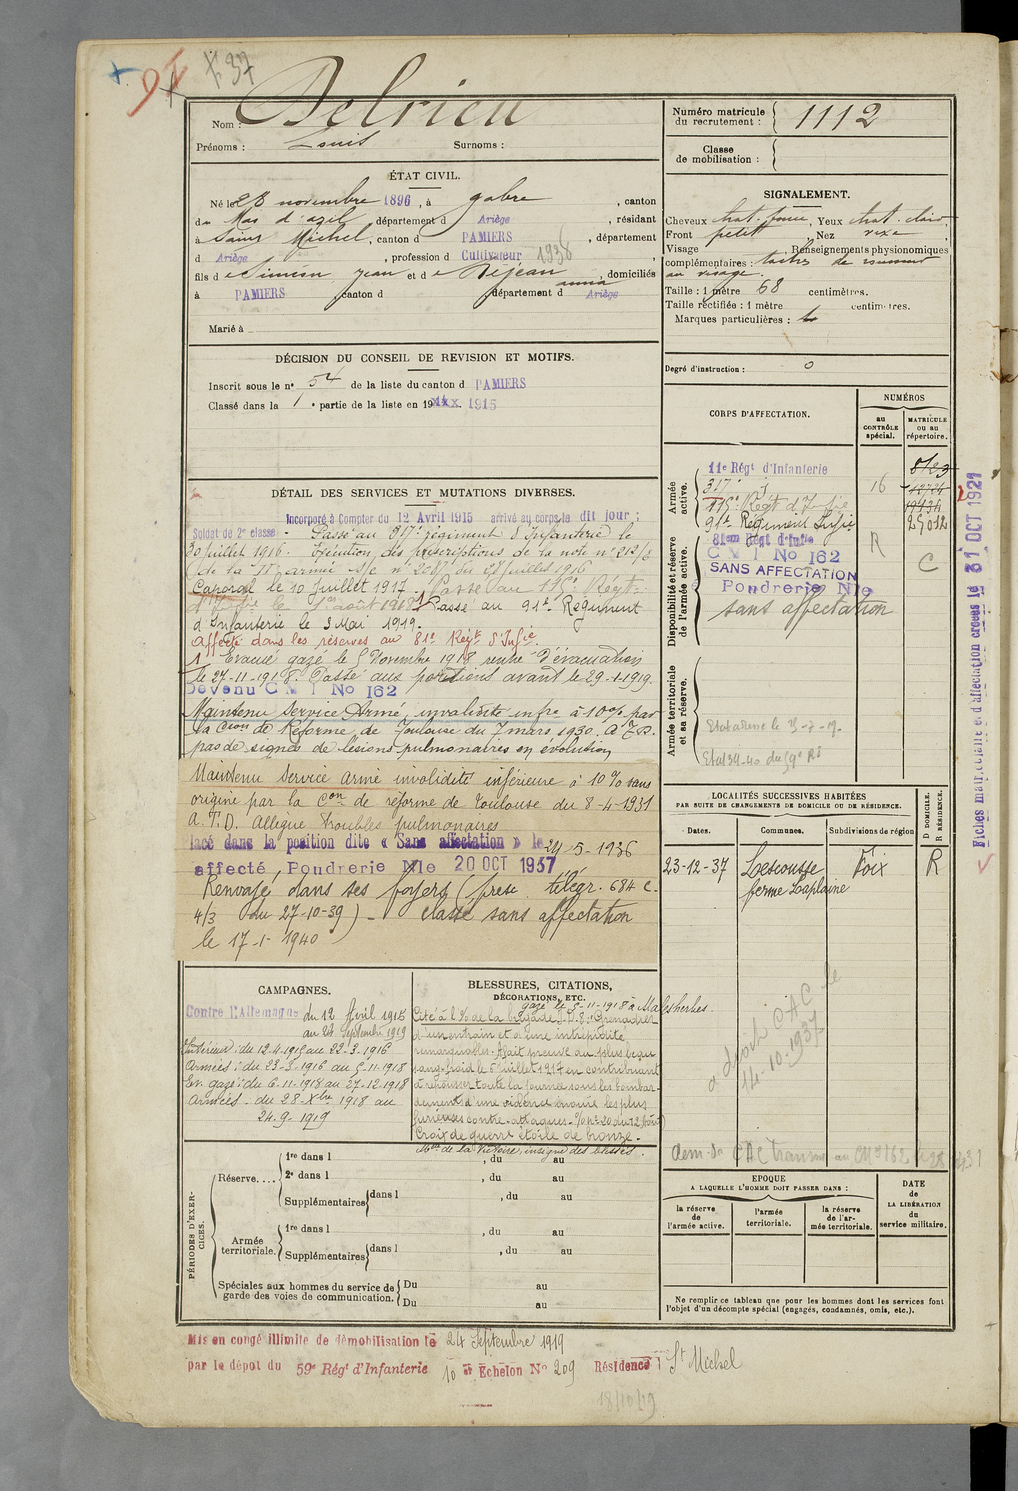 + 37
Nom : Delrieu
Prénoms : Louis Surnoms :
Numéro matricule du recrutement : 1112
Classe de mobilisation :
ÉTAT CIVIL.
Né le 28 novembre 1896, à Gabre, canton
du Mas d'azil, département d Ariège, résidant
à Saint Michel, canton d PAMIERS, département
d Ariège, profession d Cultivateur 1936
fils de Siméon Jean et de Dejean anna, domiciliés
à PAMIERS canton d département d Ariège
Marié à
SIGNALEMENT.
Cheveux chat. foncé, Yeux chat. clair
Front petit, Nez vexe
Visage , Renseignements physionomiques
complémentaires : taches de rousseur
au visage.
Taille : 1 mètre 68 centimètres.
Taille rectifiée : 1 mètre centimètres.
Marques particulières :
Degré d'instruction : 0
DÉCISION DU CONSEIL DE REVISION ET MOTIFS.
Inscrit sous le n° 54 de la liste du canton d PAMIERS
Classé dans la 1e partie de la liste en 19 1915
DÉTAIL DES SERVICES ET MUTATIONS DIVERSES.
Incorporé à Compter du 12 Avril 1915 arrivé au corps le dit jour ;
Soldat de 2e classe - Passé au 317e régiment d'Infanterie le
30 juillet 1916. Exécution des prescriptions de la note n° 212/3
de la IIe armée S/c n° 2087 du 28 juillet 1916
Caporal le 10 Juillet 1917. Passé au 115e Régt
d'Infie le 1er août 1918. Passé au 91e Régiment
d'Infanterie le 3 Mai 1919.
Affecté dans les réserves au 81e Régt d'Infie.
1 Evacué gazé le 5 Novembre 1918 rentré d'évacuation
le 27-11-1918. Passé aux portions avant le 29-1-1919.
Devenu C M I No 162
Maintenu Service Armé, invalidité infre à 10% par
la Cion de Réforme de Toulouse du 7 mars 1930. A.T.D.
pas de signes de lésions pulmonaires en évolution
Maintenu Service armé invalidité inférieure à 10% sans
origine par la Con de réforme de Toulouse du 8-4-1931
A.T.D. Allègue troubles pulmonaires
lacé dans la position dite « Sans affectation » le 24-5-1936
affecté Poudrerie Nle 20 OCT 1937
Renvoyé dans ses foyers (presc. télégr. 684 c-
4/3 du 27-10-39) - classé sans affectation
le 17-1-1940
CORPS D'AFFECTATION.
NUMÉROS
au CONTRÔLE spécial.
MATRICULE ou au répertoire.
Armée active.
11e Régt d'Infanterie
317e
115e Régt d'Infie 16
91e Régiment Infie 25012
Disponibilité et réserve de l'armée active.
81em Régt d'Infie R
C M I No 162 C
SANS AFFECTATION
Poudrerie Nle
sans affectation
Armée territoriale et sa réserve.
LOCALITÉS SUCCESSIVES HABITÉES
PAR SUITE DE CHANGEMENTS DE DOMICILE OU DE RÉSIDENCE.
Dates. Communes. Subdivisions de région D DOMICILE. R RÉSIDENCE.
23-12-37 Lescousse Foix R
ferme Laplaine
14-10-1937
CAMPAGNES.
Contre l'Allemagne du 12 Avril 1915
au 24 Septembre 1919
Intérieur : du 12-4-1915 au 22-3-1916
Armées : du 23-3-1916 au 5-11-1918
Ev. gazé : du 6-11-1918 au 27-12-1918
Armées - du 28-Xbre 1918 au
24-9-1919
BLESSURES, CITATIONS,
DÉCORATIONS, ETC.
gazé le 5-11-1918 à Malesherbes.
Cité à l'O. de la brigade : Grenadier
d'un entrain et d'une intrépidité
remarquables. A fait preuve du plus beau
sang-froid le 6 juillet 1917 en contribuant
à repousser toute la journée sous les bombar-
dements d'une violence inouïe les plus
furieuses contre-attaques.
Croix de guerre étoile de bronze.
Mlle de la Victoire, insigne des blessés.
PÉRIODES D'EXERCICES.
Réserve....
1re dans l , du au
2e dans l , du au
Supplémentaires dans l , du au
Armée territoriale.
1re dans l , du au
Supplémentaires dans l , du au
Spéciales aux hommes du service de garde des voies de communication.
Du au
Du au
ÉPOQUE
A LAQUELLE L'HOMME DOIT PASSER DANS :
la réserve de l'armée active.
l'armée territoriale.
la réserve de l'armée territoriale.
DATE de LA LIBÉRATION du service militaire.
Ne remplir ce tableau que pour les hommes dont les services font
l'objet d'un décompte spécial (engagés, condamnés, omis, etc.).
Mis en congé illimité de démobilisation le 24 Septembre 1919
par le dépot du 59e Régt d'Infanterie 10 er Echelon No 209 Résidence : St Michel
18/10/19
Fiches matriculaire et d'affectation créées le 31 OCT 1921